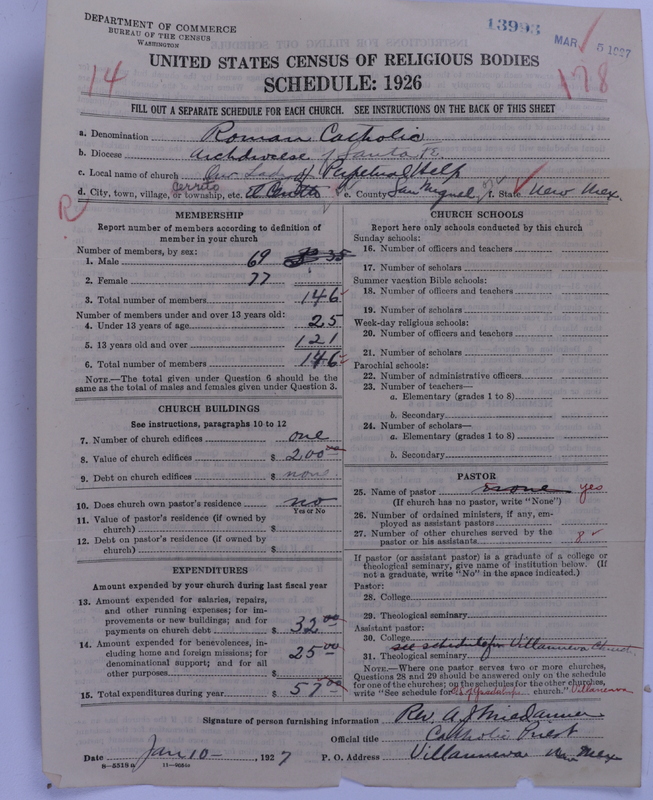 DEPARTMENT OF COMMERCE
BUREAU OF THE CENSUS
WASHINGTON
13993
MAR 5 1927
UNITED STATES CENSUS OF RELIGIOUS BODIES
SCHEDULE: 1926
14
178
FILL OUT A SEPARATE SCHEDULE FOR EACH CHURCH. SEE INSTRUCTIONS ON THE BACK OF THIS SHEET
a. Denomination Roman Catholic
b. Diocese Archdiocese of Santa Fe
c. Local name of church Our Lady of Perpetual Help
d. City, town, village, or township, etc. Cerrito e. County San Miguel f. State New Mex.
R
MEMBERSHIP
Report number of members according to definition of
member in your church
Number of members, by sex:
1. Male 69 35
2. Female 77
3. Total number of members 146
Number of members under and over 13 years old:
4. Under 13 years of age 25
5. 13 years old and over 121
6. Total number of members 146
NOTE.—The total given under Question 6 should be the
same as the total of males and females given under Question 3.
CHURCH BUILDINGS
See instructions, paragraphs 10 to 12
7. Number of church edifices one
8. Value of church edifices $ 200
9. Debt on church edifices $ none
10. Does church own pastor's residence no
Yes or No
11. Value of pastor's residence (if owned by
church) $
12. Debt on pastor's residence (if owned by
church) $
EXPENDITURES
Amount expended by your church during last fiscal year
13. Amount expended for salaries, repairs,
and other running expenses; for im-
provements or new buildings; and for
payments on church debt $ 32 00
14. Amount expended for benevolences, in-
cluding home and foreign missions; for
denominational support; and for all
other purposes $ 25 00
15. Total expenditures during year $ 57 00
CHURCH SCHOOLS
Report here only schools conducted by this church
Sunday schools:
16. Number of officers and teachers
17. Number of scholars
Summer vacation Bible schools:
18. Number of officers and teachers
19. Number of scholars
Week-day religious schools:
20. Number of officers and teachers
21. Number of scholars
Parochial schools:
22. Number of administrative officers
23. Number of teachers—
a. Elementary (grades 1 to 8)
b. Secondary
24. Number of scholars—
a. Elementary (grades 1 to 8)
b. Secondary
PASTOR
25. Name of pastor none yes
(If church has no pastor, write "None")
26. Number of ordained ministers, if any, em-
ployed as assistant pastors
27. Number of other churches served by the
pastor or his assistants 8
If pastor (or assistant pastor) is a graduate of a college or
theological seminary, give name of institution below. (If
not a graduate, write "No" in the space indicated.)
Pastor:
28. College
29. Theological seminary
Assistant pastor:
30. College
see schedule for Villanueva Church
31. Theological seminary
NOTE.—Where one pastor serves two or more churches,
Questions 28 and 29 should be answered only on the schedule
for one of the churches; on the schedules for the other churches,
write "See schedule for of Guadalupe church." Villanueva
Signature of person furnishing information Rev. A.
Official title Catholic Priest
Date Jan 10 -, 1927 P. O. Address Villanueva New Mex
8-5518a